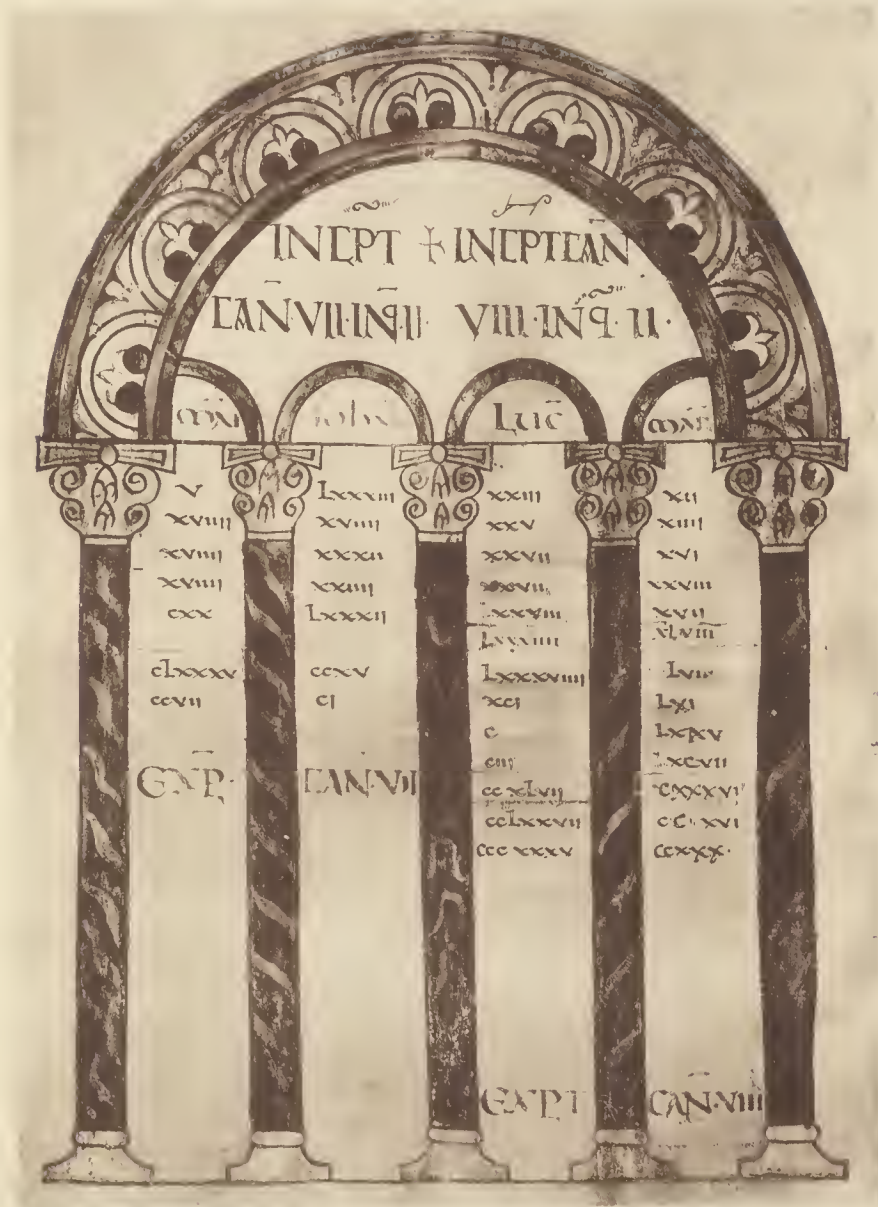 INCPT + INCPT CAÑ
CAÑ VII·IÑ·II· VIII·INq̃·II·
LUC̄
V Lxxxiii xxiii xii
xviiii xviiii xxv xiiii
xviiii xxxii xxvii xvi
xviiii xxiiii xxviii
cxx Lxxxii Lxxxviii xvii
xlviii
cLxxxv ccxv Lxxxviiii
ccvii ci xci Lxi
c
Lxcvii
EXP̄· CAN·VII ccxlvii cxxxvi
ccLxxvii cc xvi
ccc xxxv ccxxx·
EXPT CAÑ·VIII